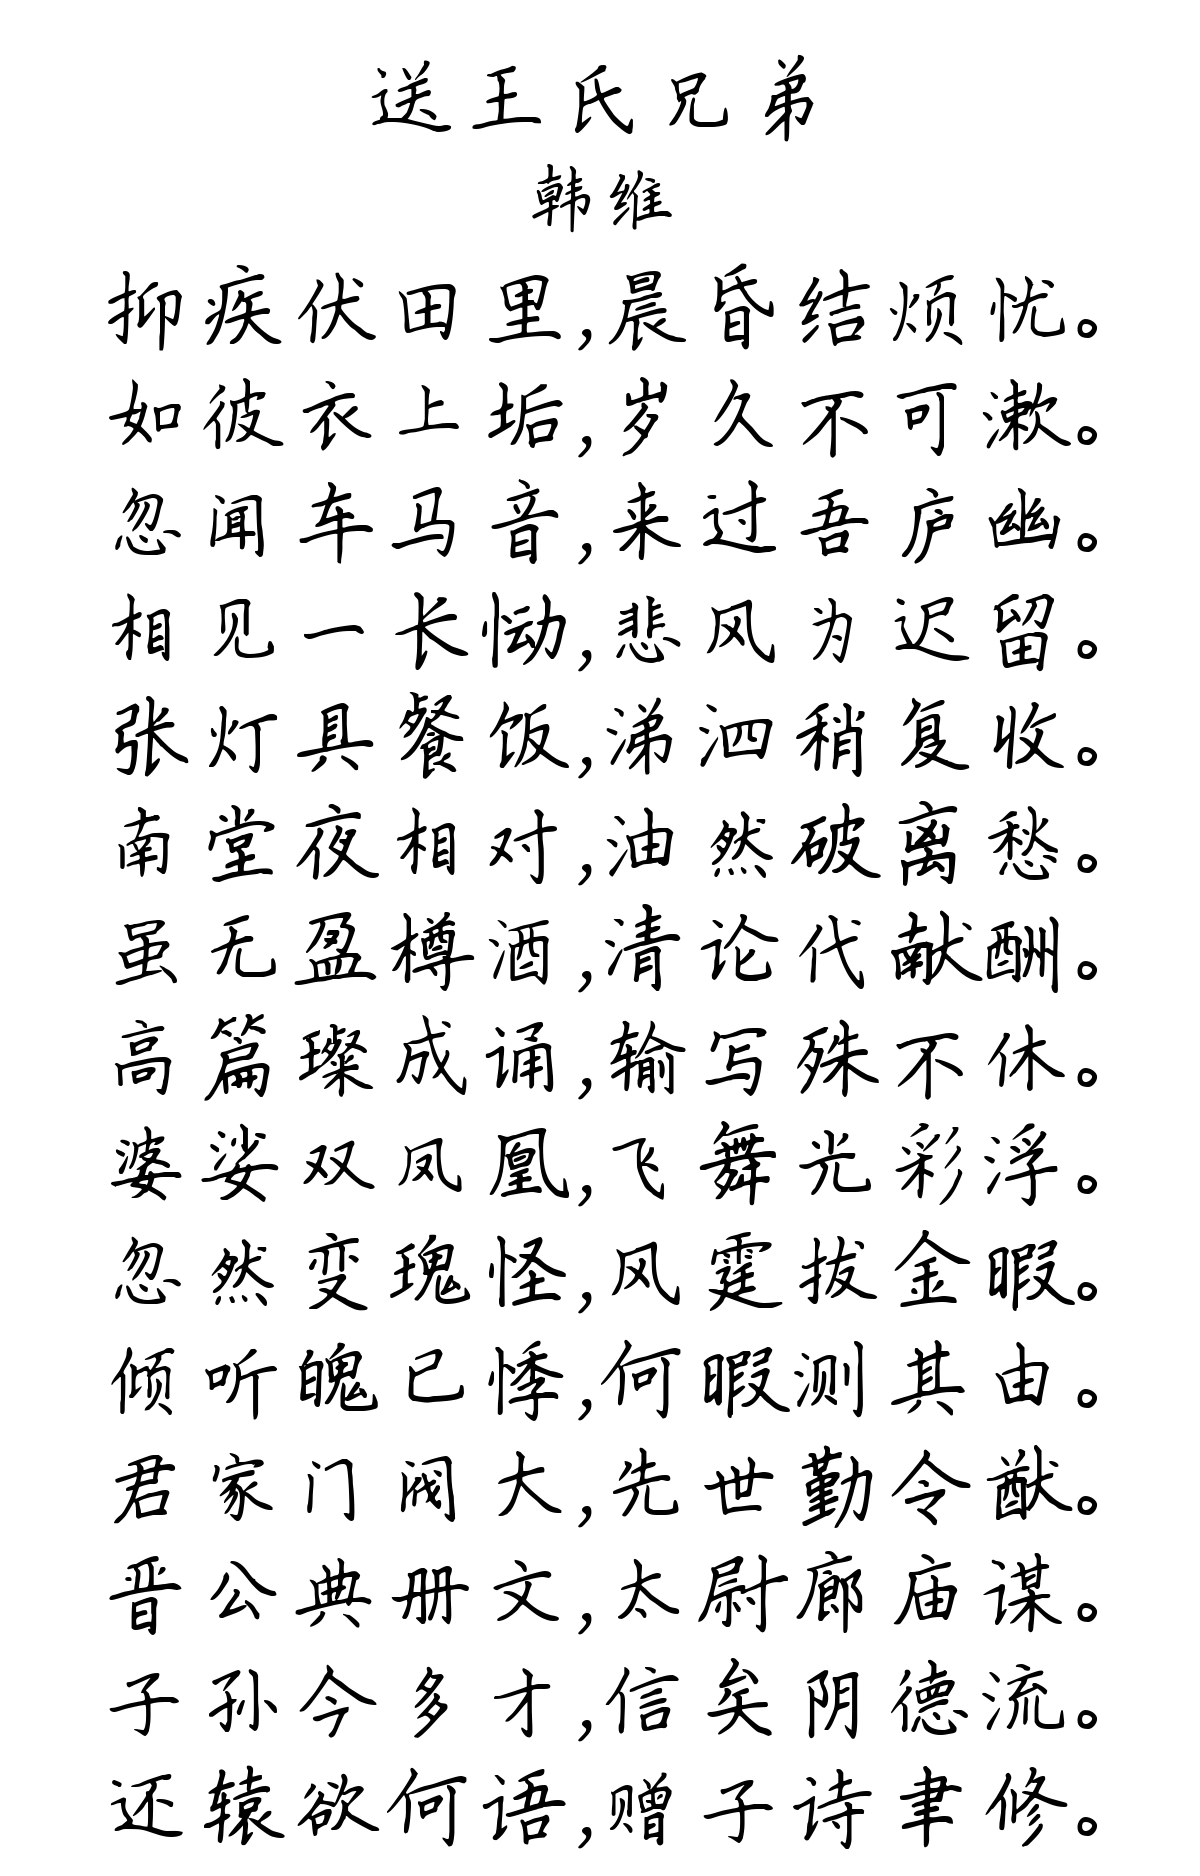 送王氏兄弟
韩维
抑疾伏田里,晨昏结烦忧。
如彼衣上垢,岁久不可漱。
忽闻车马音,来过吾庐幽。
相见一长恸,悲风为迟留。
张灯具餐饭,涕泗稍复收。
南堂夜相对,油然破离愁。
虽无盈樽酒,清论代献酬。
高篇璨成诵,输写殊不休。
婆娑双凤凰,飞舞光彩浮。
忽然变瑰怪,风霆拔金暇。
倾听魄已悸,何暇测其由。
君家门阀大,先世勤令猷。
晋公典册文,太尉廊庙谋。
子孙今多才,信矣阴德流。
还辕欲何语,赠子诗聿修。